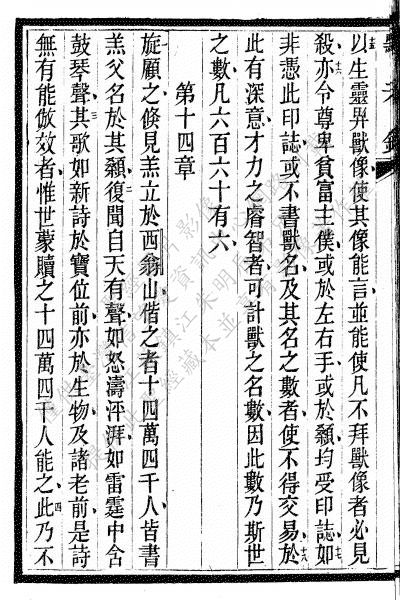 以生靈畀獸像使其像能言並能使凡不拜獸像者必見
殺亦令尊卑貧富主僕或於左右手或於顙均受印誌如
非憑此印誌或不書獸名及其名之數者使不得交易於
此有深意才力之睿智者可計獸之名數因此數乃斯世
之數凡六百六十有六
第十四章
旋顧之倏見羔立於西翁山偕之者十四萬四千人皆書
羔父名於其顙復聞自天有聲如怒濤泙湃如雷霆中含
鼓琴聲其歌如新詩於寶位前亦於生物及諸老前是詩
無有能倣效者惟世蒙贖之十四萬四千人能之此乃不